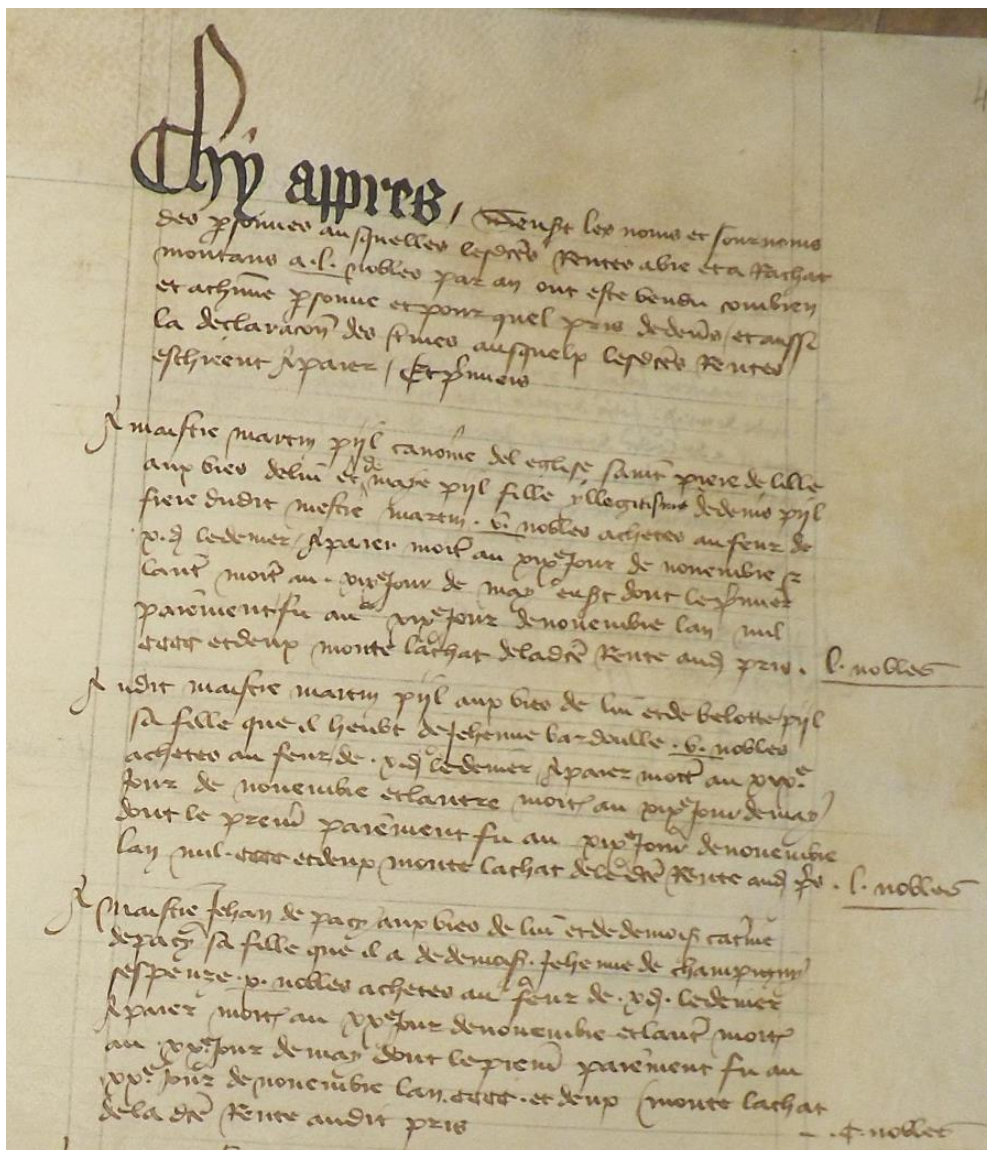 Chy appres / Senst les noms et sournoms
des psonnes ausquelles lesdtes Rentes a vie et a Rachat
montans a .l. nobles par an ont este vendu combien
et a chune psonne et pour quel pris de deniers / et aussi
la declaracon des tmes ausquelx lesdtes Rentes
eschieent A paier / Et pmiers
A maistre martin pijl canoine del eglise saint piere de lille
aux vies de lui et de marie pijl fille yllegitisme de denis pijl
frere dudit mestre martin .v. nobles achetes au feur de
x. d le denier A paier moit au xixe Jour de novembre et
laut moit au . xixe Jour de may enst dont le pmier
paiement fu au xixe Jour de novembre lan mil
cccc et deux monte lachat de la dte Rente aud pris . l. nobles
A udit maistre martin pijl aux vies de lui et de belotte pijl
sa fille que il heubt de Jehenne bardoulle .v. nobles
achetes au feur de .x. d le denier A paier moit au xixe
Jour de novembre et lautre moit au xixe Jour de may
dont le premi paiement fu au xixe Jour de novembre
lan mil .cccc et deux monte lachat de le dte Rente aud ps . l. nobles
A maistre Jehan de pacy aux vies de lui et de demois catine
de pacy sa fille que il a de demois. Jehenne de champigny
sespeuze .x. nobles achetes au feur de .x d. le denier
A paier moit au xxe Jour de novembre et laut moit
au .xxe Jour de may dont le premi paiement fu au
xxe Jour de novembre lan .cccc. et deux / monte lachat
de la dte Rente audit pris .c. nobles